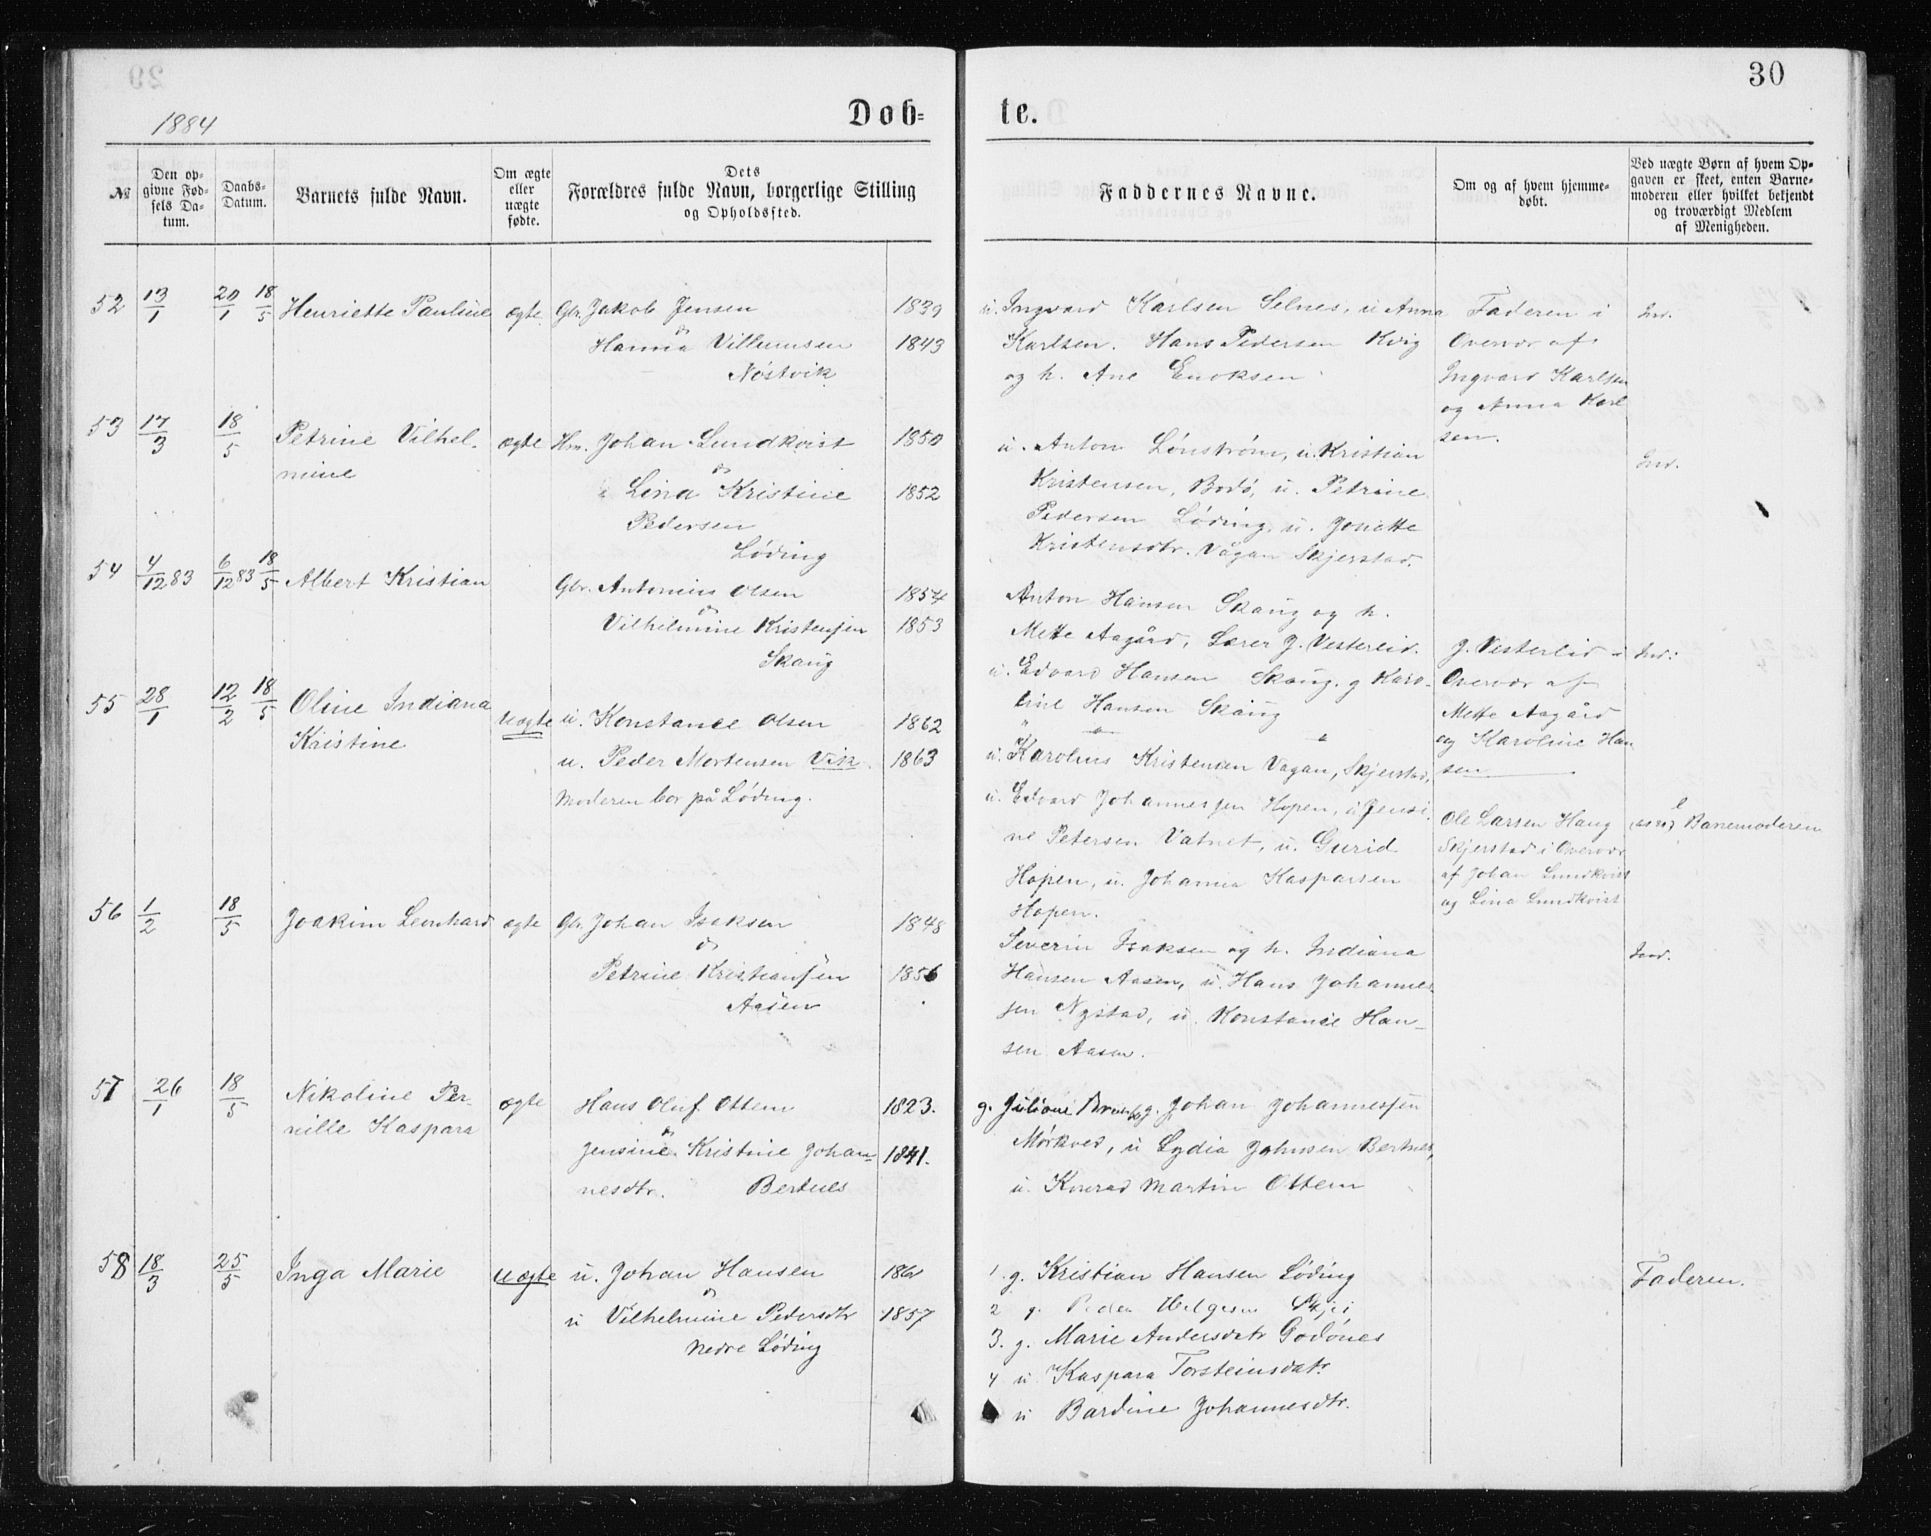 30
1884
Døb=
te.
№
Den op-
givne Fød-
sels Da-
tum.
Daabs-
Datum.
Barnets fulde Navn.
Om ægte
eller
uægte
fødte.
Dets
Forældres fulde Navn, borgerlige Stilling
og Opholdssted.
Faddernes Navne.
Om og af hvem hjemme-
døbt.
Ved uægte Børn af hvem Op-
gaven er skeet, enten Barne-
moderen eller hvilket bekjendt
og troværdigt Medlem
af Menigheden.
52 13/1 20/1 18/5 Henriette Pauline ægte Gbr. Jakob Jensen 1839
og
Hanna Villumsen 1843
Nøstvik
u. Ingvard Karlsen Selnes, u Anna
Karlsen. Hans Pedersen Kvig
og h. Ane Enoksen
Faderen i
Overvær af
Ingvard Karlsen
og Anna Karl
sen.
53 17/3 18/5 Petrine Vilhel-
mine
ægte Hm. Johan Lundkvist 1850
og
Lina Kristine 1852
Pedersen
Løding
u. Anton Lønstrøm, u. Kristian
Kristensen, Bodø, u. Petrine
Pedersen Løding, u. Jonette
Kristensdtr. Vågan Skjerstad.
54 4/12 83 6/12 83 18/5 Albert Kristian
Gbr. Antonius Olsen 1854
og
Vilhelmine Kristensen 1853
Skaug
Anton Hansen Skaug og h.
Mette Aagård, Lærer J. Vesterlid.
u. Edvard Hansen Skaug. g Karo-
line Hansen Skaug
J. Vesterlid i
Overvær af
Mette Aagård
og Karoline Han
sen
55 28/1 12/2 18/5 Oline Indiana
Kristine
uægte u. Konstance Olsen 1862
u. Peder Mortensen Vik. 1863
Moderen bor på Løding.
u. Karolius Kristensen Vagan, Skjerstad,
u. Edvard Johannessen Hopen, u Jensi-
ne Petersen Vatnet, u. Gurid
Hopen, u. Johanna Kasparsen
Hopen.
Ole Larsen Haug
Skjerstad i Overvær
af Johan Lundkvist
og Lina Lundkvist
Banemoderen
56 1/2 18/5 Joakim Leonhard ægte Gbr. Johan Isaksen 1848
og
Petrine Kristiansen 1856
Aasen
Severin Isaksen og h. Indiana
Hansen Aasen, u. Hans Johannes-
sen Nystad, u. Konstance Han-
sen Aasen.
57 26/1 18/5 Nikoline Per-
nille Kaspara
ægte Hans Oluf Ottem 1823.
og
Jensine Kristine Johan- 1841.
nesdtr. Bertnes
g. Juliane g. Johan Johannessen
Mørkved, u Lydia Johnsen Bertnes,
u. Konrad Martin Ottem
58 18/3 25/5 Inga Marie uægte u. Johan Hansen 1861
og
u Vilhelmine Pedersdtr 1857
Nedre Løding
1. g. Kristian Hansen Løding
2 g. Peder Helgesen
3. g. Marie Andersdatr Godønes
4 u Kaspara Torsteinsdatr.
u Bardine Johannesdtr.
Faderen.